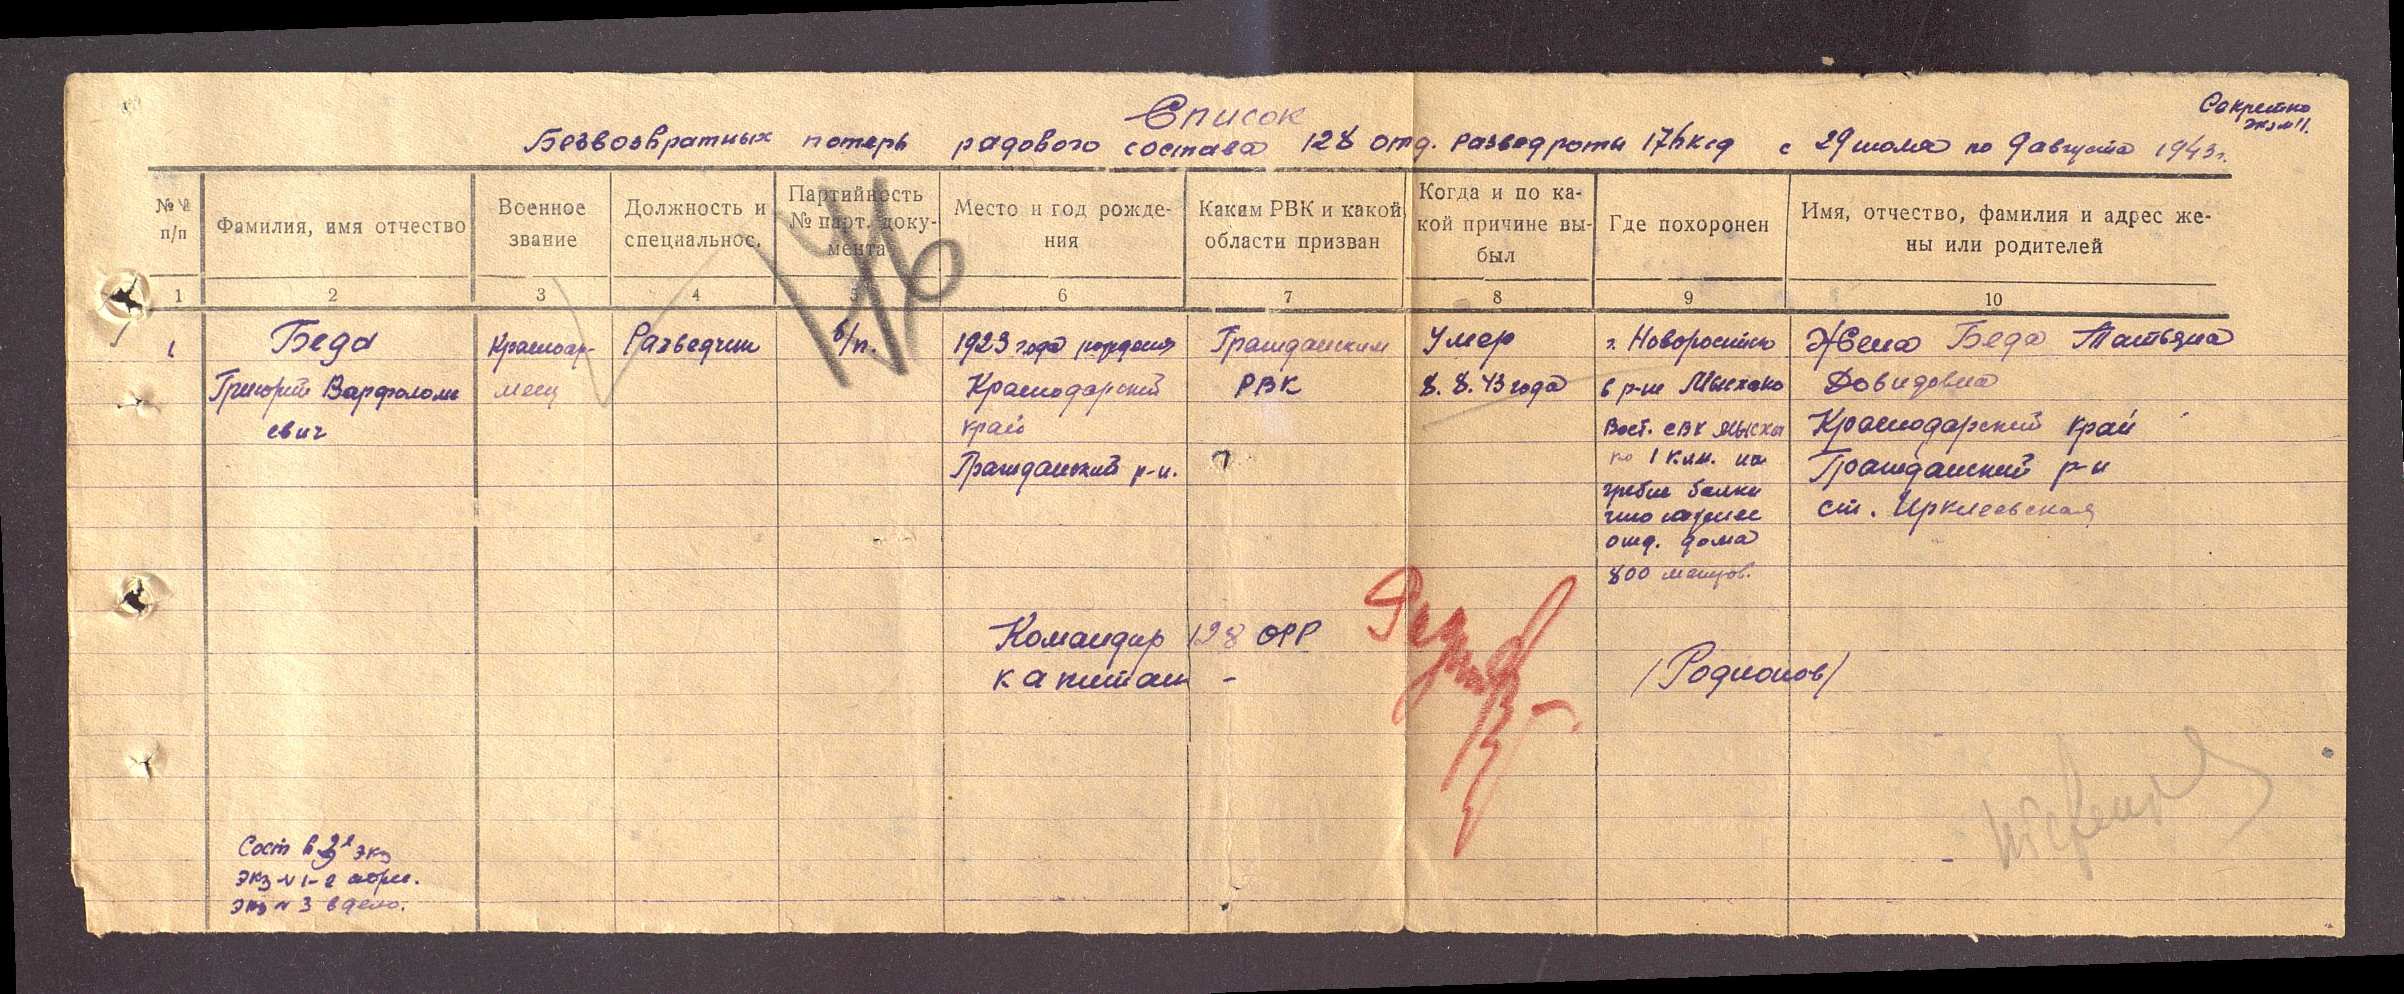 Секретно
Экз N 1.
Список
Безвозвратных потерь рядового состава 128 отд. разведроты 176 ксд с 29 июля по 9 августа 1943 г.
№№ п/п
Фамилия, имя отчество
Военное звание
Должность и специальнос.
Партийность № парт. документа
Место и год рождения
Каким РВК и какой области призван
Когда и по какой причине выбыл
Где похоронен
Имя, отчество, фамилия и адрес жены или родителей
1 2 3 4 5 6 7 8 9 10
176
1
Беда
Григорий Варфоломе
евич
Красноар-
меец
Разведчик
б/п.
1923 года рождения
Краснодарский
край
Гражданский р-н.
Гражданским
РВК
Умер
8. 8. 43 года
г. Новоросийск
в р-не Мысхако
Вост. свх Мысха
ко 1 клм. на
гребне балки
отд. дома
800 метров.
Жена Беда Татьяна
Довидовна
Краснодарский край
Гражданский р-н
ст. Ирклеевская
Командир 128 ОРР
капитан -
/Родионов/
Сост в 3х экз
Экз N 1-2 адрес.
Экз N 3 в дело.